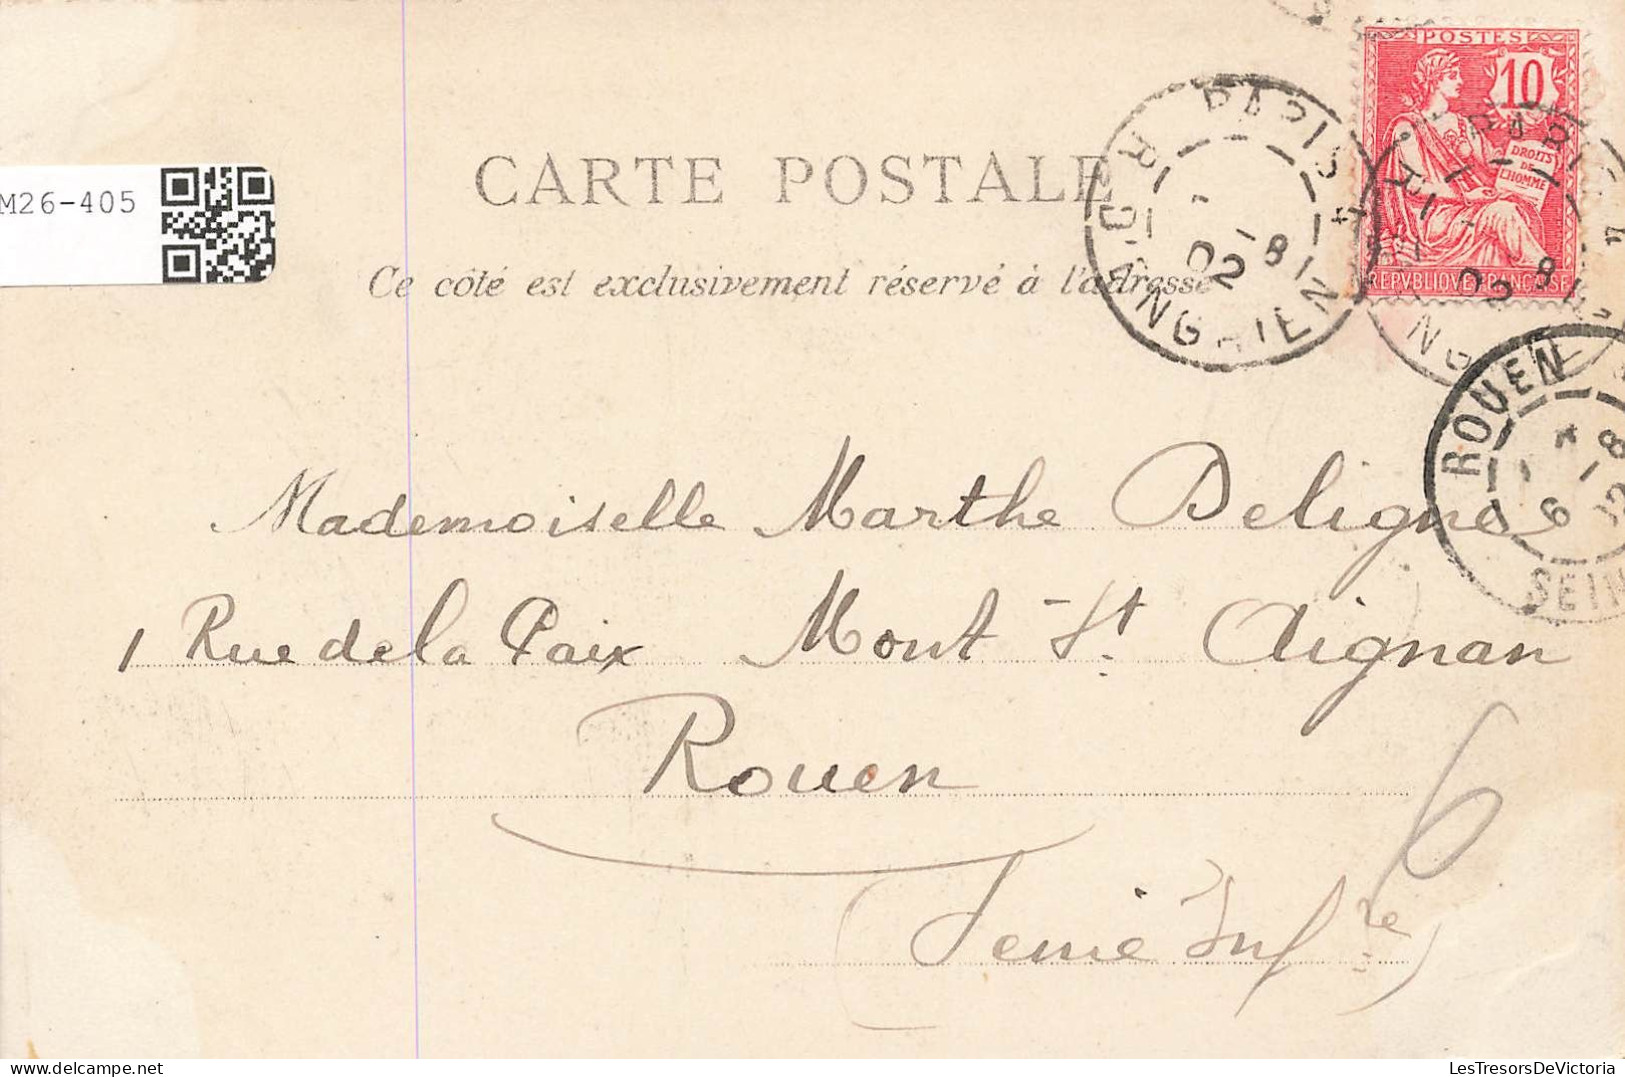 POSTES
10
DROITS
DE
L'HOMME
REPVBLIQVE FRANÇAISE
PARIS
R. D'ENGHIEN
8 02
M26-405
CARTE POSTALE
Ce côté est exclusivement réservé à l'adresse
ROUEN
6 8 02
SEIN
Mademoiselle Marthe Deligne
1 Rue de la Paix Mont St Aignan
Rouen
(Seine Infre)
6
LesTresorsDeVictoria